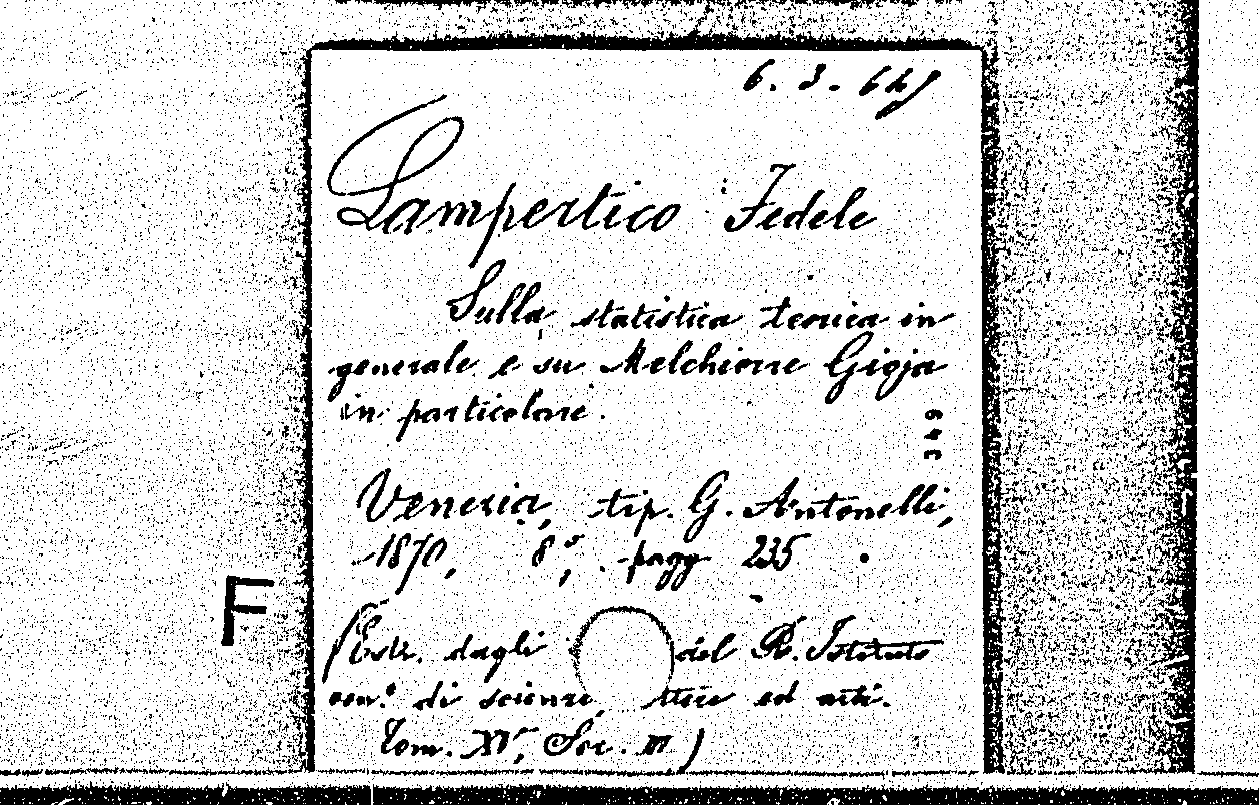 6. 3. 64
Lampertico Fedele
Sulla statistica teorica in
generale e su Melchiorre Gioja
in particolare.
349
Venezia, tip. G. Antonelli,
1870, 8°, pagg 235
F
(Estr. dagli del R. Istituto
ven.° di scienze, ttere ed arti.
Tom. XV, Ser. III)